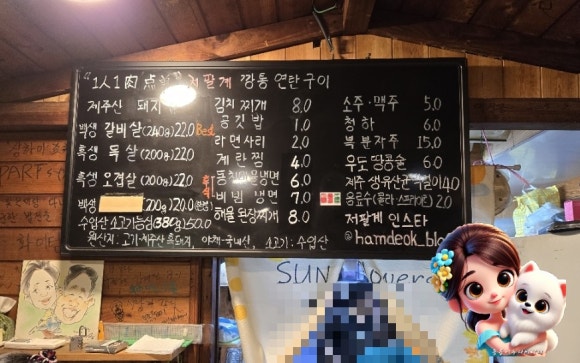 "1人1肉 点 저팔계 깡통 연탄구이
제주산 돼지
백생 갈비살(240g)22.0 Best
흑생 목살(200g)22.0
흑생 오겹살(200g)22.0
백생 20.0
수입산 소고기등심(380g)50.0
원산지: 고기-제주산 흑돼지, 야채-국내산, 소고기: 수입산
김치찌개 8.0
공깃밥 1.0
라면사리 2.0
계란찜 4.0
물냉면 6.0
비빔냉면 7.0
해물 된장찌개 8.0
소주·맥주 5.0
청하 6.0
복분자주 15.0
우도 땅콩술 6.0
제주 생유산균 막걸이 4.0
음료수(콜라·스프라이트) 2.0
저팔계 인스타
@hamdeok_blac
SUN